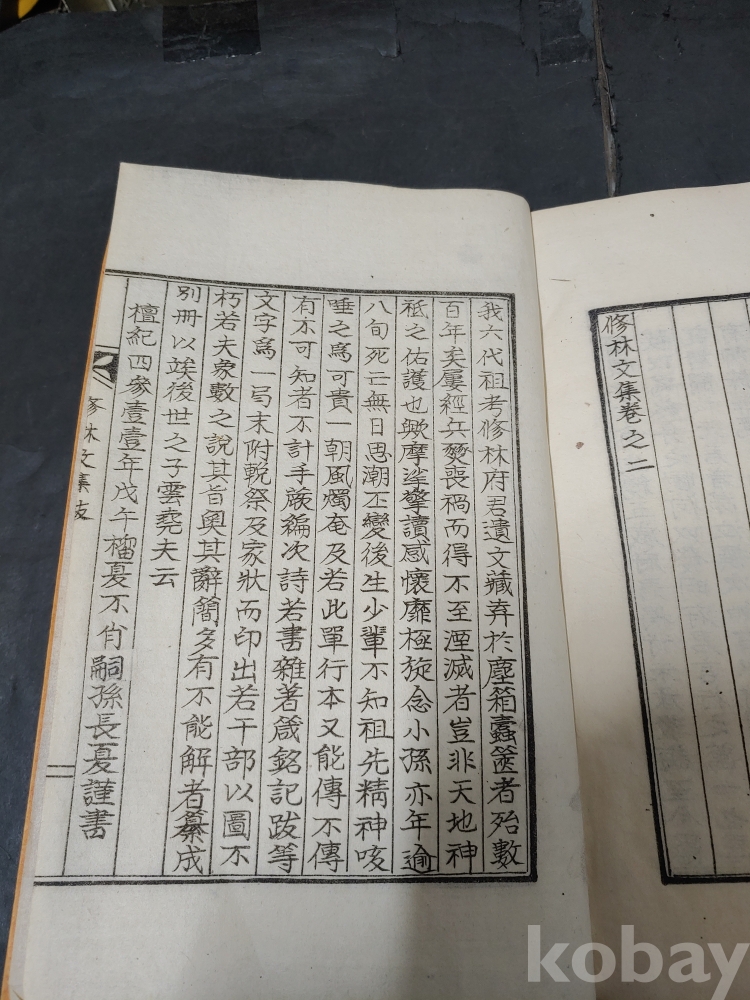 修林文集卷之二
我六代祖考修林府君遺文藏弆於塵箱蠹篋者殆數
百年矣屢經兵燹喪禍而得不至湮滅者豈非天地神
祗之佑護也歟摩挲擎讀感懷靡極旋念小孫亦年逾
八旬死亡無日思潮丕變後生少輩不知祖先精神咳
唾之爲可貴一朝風燭奄及若此單行本又能傳不傳
有不可知者不計手蕨編次詩若書雜著箴銘記跋等
文字爲一局末附輓祭及家狀而印出若干部以圖不
朽若夫象數之說其旨奧其辭簡多有不能解者纂成
別冊以竢後世之子雲堯夫云
檀紀四參壹壹年戊午榴夏不肖嗣孫長夏謹書
修林文集跋
kobay